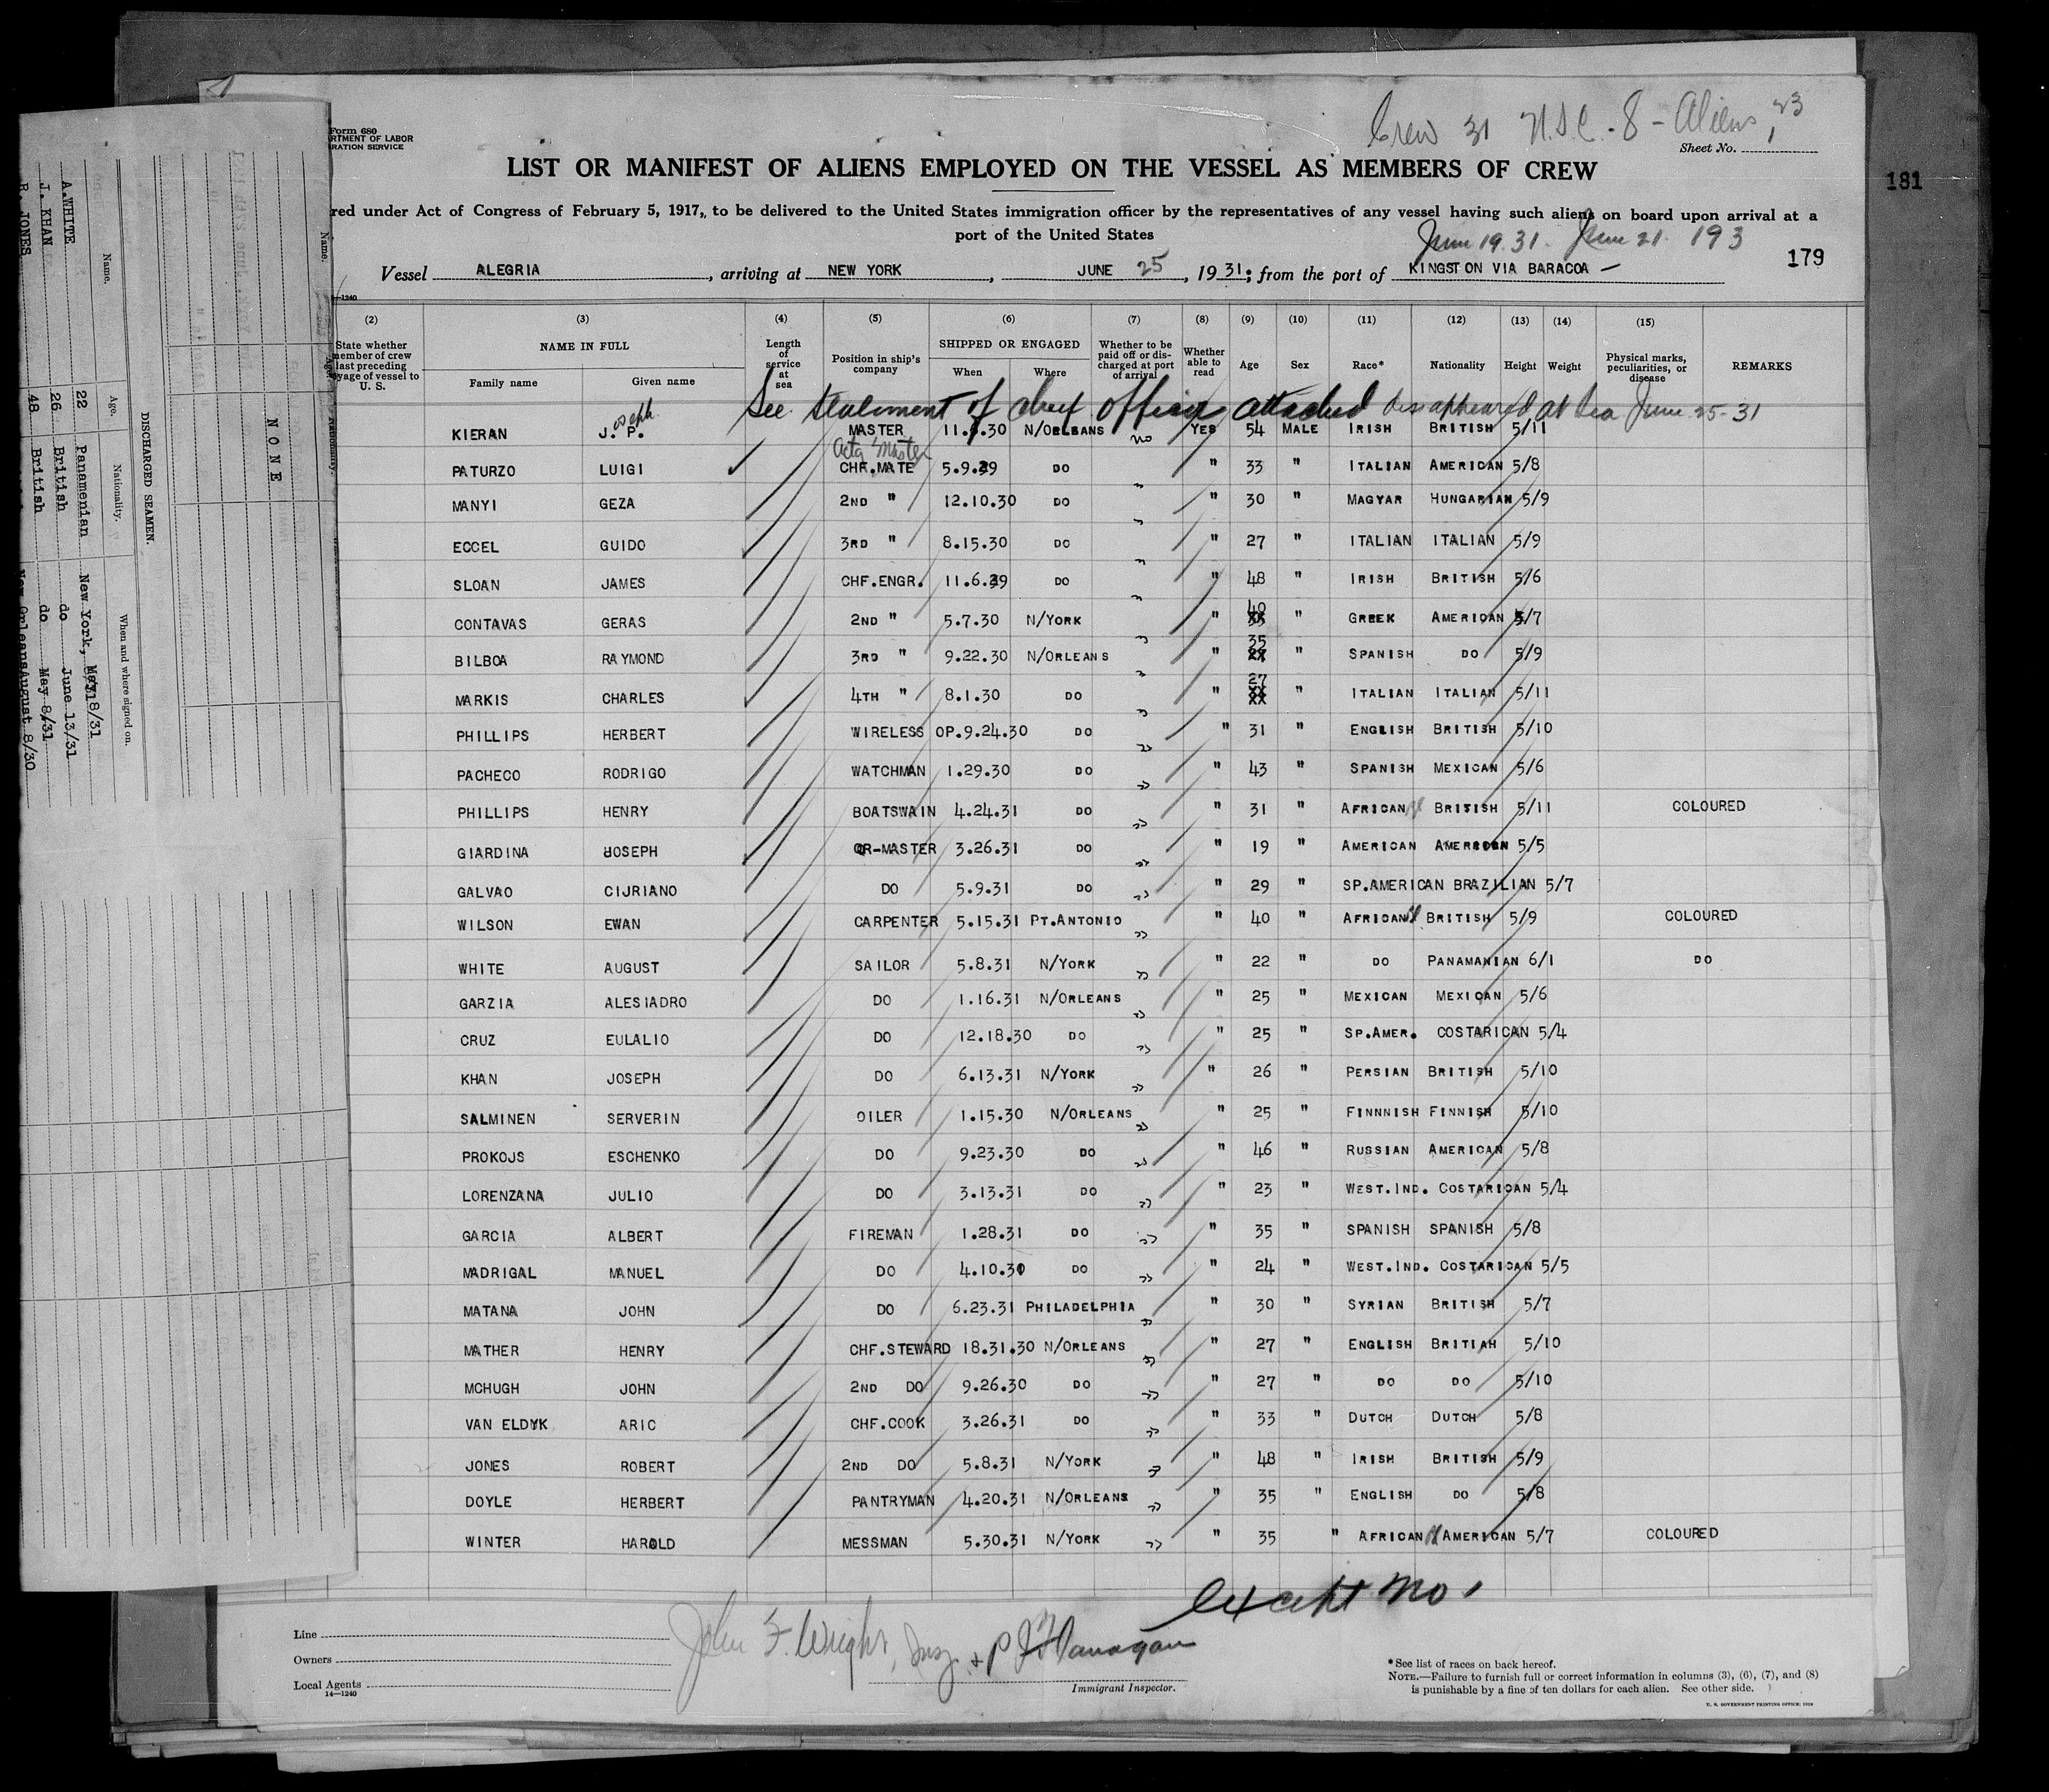 Form 680
RTMENT OF LABOR
RATION SERVICE
Crew 31 U.S.C. - 8 - Aliens, 23
Sheet No.
LIST OR MANIFEST OF ALIENS EMPLOYED ON THE VESSEL AS MEMBERS OF CREW
181
red under Act of Congress of February 5, 1917, to be delivered to the United States immigration officer by the representatives of any vessel having such aliens on board upon arrival at a
port of the United States
June 19. 31. June 21. 193
179
Vessel ALEGRIA, arriving at NEW YORK, JUNE 25, 1931; from the port of KINGSTON VIA BARACOA —
—1240
(2) (3) (4) (5) (6) (7) (8) (9) (10) (11) (12) (13) (14) (15)
State whether member of crew last preceding yage of vessel to U. S.
NAME IN FULL
Family name Given name
Length of service at sea
Position in ship's company
SHIPPED OR ENGAGED
When Where
Whether to be paid off or discharged at port of arrival
Whether able to read
Age Sex Race* Nationality Height Weight
Physical marks, peculiarities, or disease
REMARKS
See statement of chief officer attached disappeared at sea June 25-31
KIERAN J.oseph P. MASTER 11.5.30 N/ORLEANS no YES 54 MALE IRISH BRITISH 5/11
Actg Master
PATURZO LUIGI CHF.MATE 5.9.29 DO " " 33 " ITALIAN AMERICAN 5/8
MANYI GEZA 2ND " 12.10.30 DO " " 30 " MAGYAR HUNGARIAN 5/9
ECCEL GUIDO 3RD " 8.15.30 DO " " 27 " ITALIAN ITALIAN 5/9
SLOAN JAMES CHF.ENGR. 11.6.29 DO " " 48 " IRISH BRITISH 5/6
CONTAVAS GERAS 2ND " 5.7.30 N/YORK " " 40 " GREEK AMERICAN 5/7
BILBOA RAYMOND 3RD " 9.22.30 N/ORLEANS " " 35 " SPANISH DO 5/9
MARKIS CHARLES 4TH " 8.1.30 DO " " 27 " ITALIAN ITALIAN 5/11
PHILLIPS HERBERT WIRELESS OP. 9.24.30 DO " " 31 " ENGLISH BRITISH 5/10
PACHECO RODRIGO WATCHMAN 1.29.30 DO " " 43 " SPANISH MEXICAN 5/6
PHILLIPS HENRY BOATSWAIN 4.24.31 DO " " 31 " AFRICAN BRITISH 5/11 COLOURED
GIARDINA JOSEPH QR-MASTER 3.26.31 DO " " 19 " AMERICAN AMERICAN 5/5
GALVAO CIJRIANO DO 5.9.31 DO " " 29 " SP.AMERICAN BRAZILIAN 5/7
WILSON EWAN CARPENTER 5.15.31 PT.ANTONIO " " 40 " AFRICAN BRITISH 5/9 COLOURED
WHITE AUGUST SAILOR 5.8.31 N/YORK " " 22 " DO PANAMANIAN 6/1 DO
GARZIA ALESIADRO DO 1.16.31 N/ORLEANS " " 25 " MEXICAN MEXICAN 5/6
CRUZ EULALIO DO 12.18.30 DO " " 25 " SP.AMER. COSTARICAN 5/4
KHAN JOSEPH DO 6.13.31 N/YORK " " 26 " PERSIAN BRITISH 5/10
SALMINEN SERVERIN OILER 1.15.30 N/ORLEANS " " 25 " FINNNISH FINNISH 5/10
PROKOJS ESCHENKO DO 9.23.30 DO " " 46 " RUSSIAN AMERICAN 5/8
LORENZANA JULIO DO 3.13.31 DO " " 23 " WEST.IND. COSTARICAN 5/4
GARCIA ALBERT FIREMAN 1.28.31 DO " " 35 " SPANISH SPANISH 5/8
MADRIGAL MANUEL DO 4.10.30 DO " " 24 " WEST.IND. COSTARICAN 5/5
MATANA JOHN DO 6.23.31 PHILADELPHIA " " 30 " SYRIAN BRITISH 5/7
MATHER HENRY CHF.STEWARD 18.31.30 N/ORLEANS " " 27 " ENGLISH BRITIAH 5/10
MCHUGH JOHN 2ND DO 9.26.30 DO " " 27 " DO DO 5/10
VAN ELDYK ARIC CHF.COOK 3.26.31 DO " " 33 " DUTCH DUTCH 5/8
JONES ROBERT 2ND DO 5.8.31 N/YORK " " 48 " IRISH BRITISH 5/9
DOYLE HERBERT PANTRYMAN 4.20.31 N/ORLEANS " " 35 " ENGLISH DO 5/8
WINTER HAROLD MESSMAN 5.30.31 N/YORK " " 35 " AFRICAN AMERICAN 5/7 COLOURED
except no 1
John F. Wright, Insp. & P J Flanagan
Immigrant Inspector.
Line
Owners
Local Agents
14—1240
*See list of races on back hereof.
NOTE.—Failure to furnish full or correct information in columns (3), (6), (7), and (8)
is punishable by a fine of ten dollars for each alien. See other side.
U. S. GOVERNMENT PRINTING OFFICE: 1929
DISCHARGED SEAMEN.
Name. Age. Nationality. When and where signed on.
A.WHITE 22 Panamenian New York, May 18/31
J. KHAN 26 British do June 13/31
R. JONES 48 British do May 8/31
New Orleans August 8/30
Name.
NONE